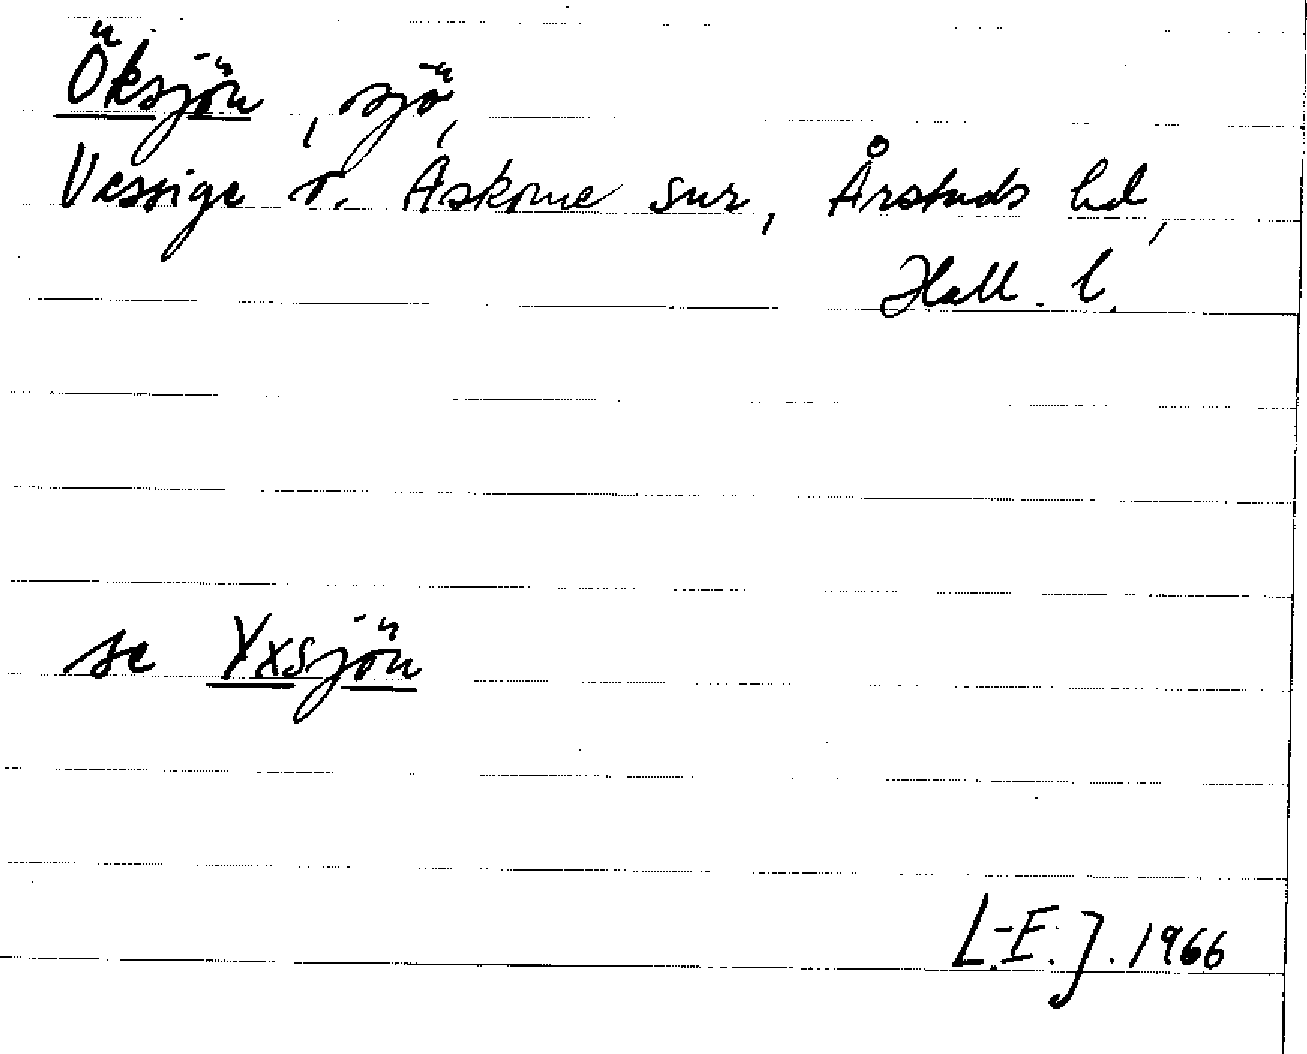 Öksjön, sjö,
Vessige o. Askome snr, Årstads hd,
Hall. l.
se Yxsjön
L.-E. J. 1966